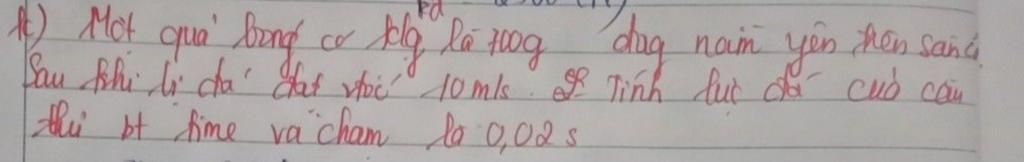 4) Một quả bóng có klg là 700g đag nằm yên trên sân.
Sau khi bị đá đạt vtốc 10 m/s. Tính lực đá của cầu
thủ bt time va chạm là 0,02 s